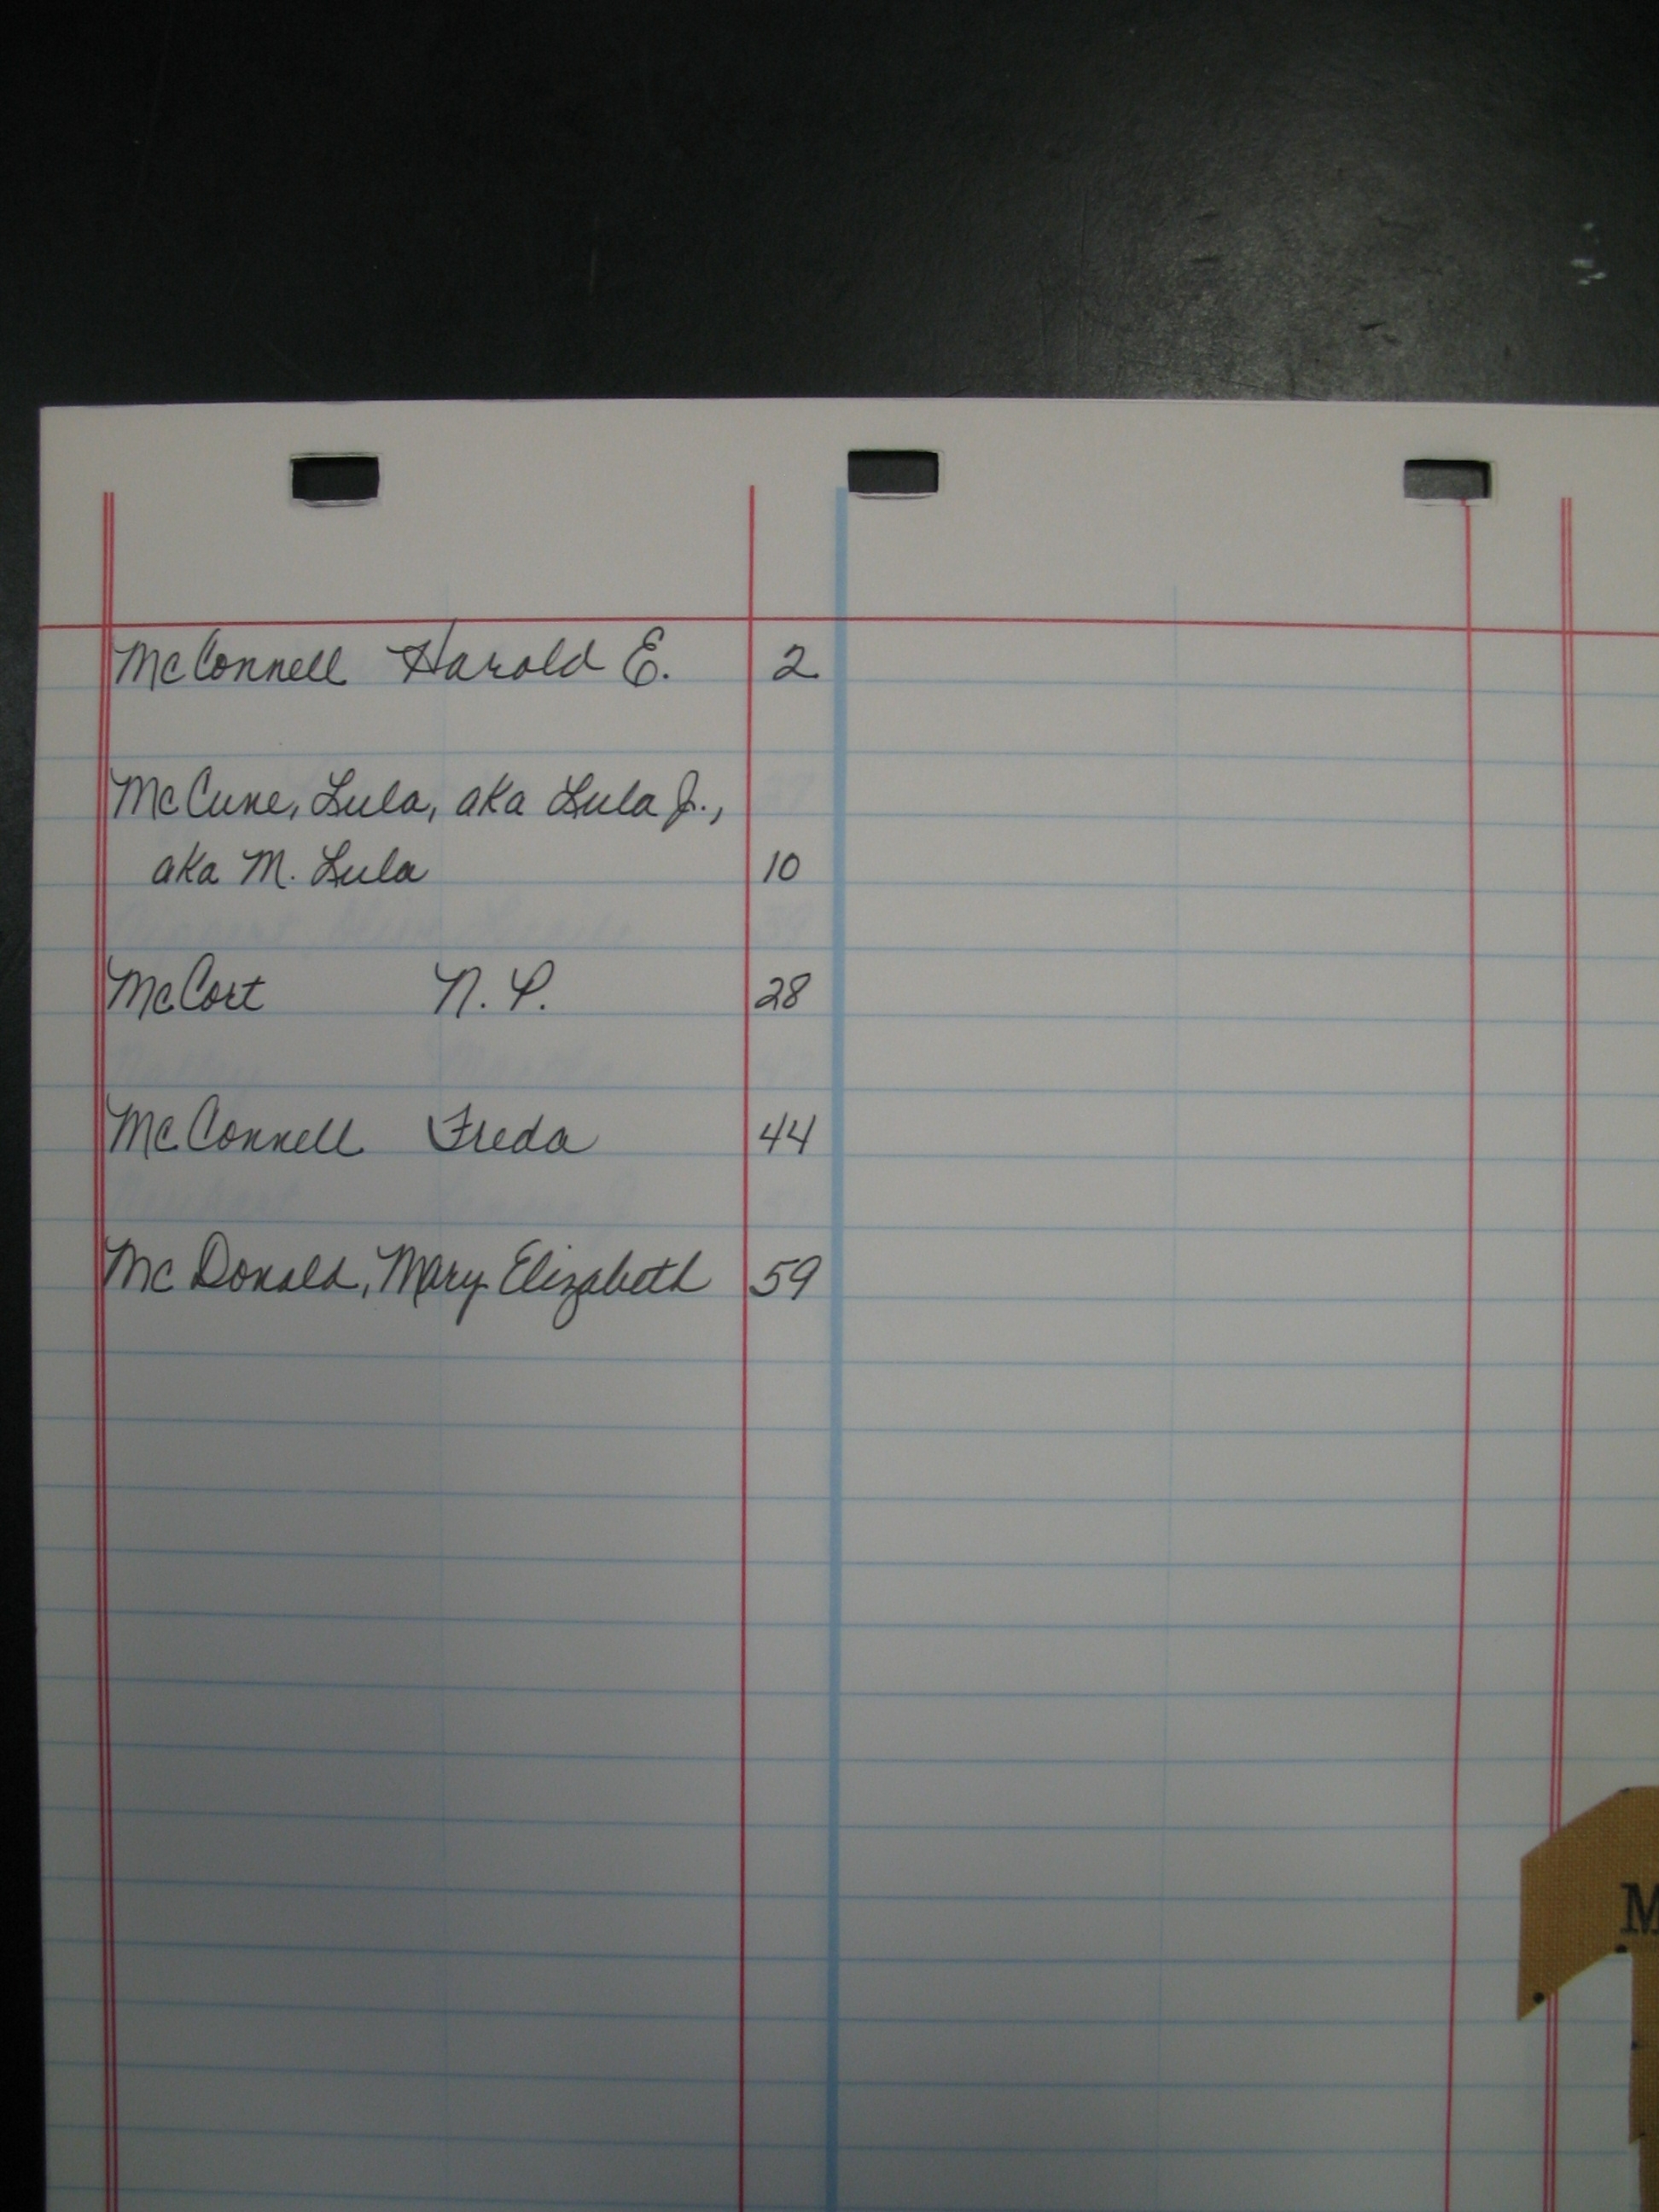 McConnell Harold E. 2
McCune, Lula, aka Lula J.,
aka M. Lula 10
McCort N. P. 28
McConnell Freda 44
McDonald, Mary Elizabeth 59
M